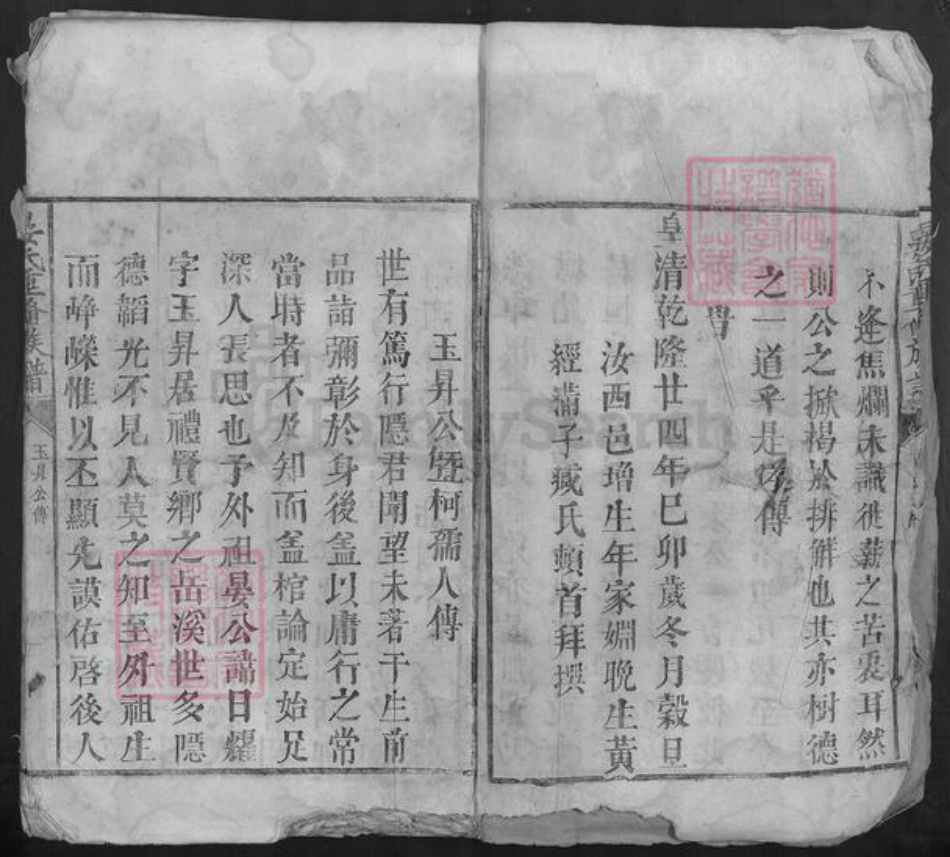 不逢焦爛未識徙薪之苦衷耳然
則公之掀揭於排解也其亦樹德
之一道乎是為傳
旹
皇清乾隆廿四年巳卯歲冬月穀旦
汝西邑增生年家嫺晚生黃
經滿子臧氏頼首拜撰
玉昇公暨柯孺人傳
世有篤行隱君聞望未著于生前
品詣彌彰於身後盖以庸行之常
當時者不及知而盖棺論定始足
深人長思也予外祖晏公諱日耀
字玉昇居禮賢鄉之岳溪世多隱
德韜光不見人莫之知至外祖生
而崢嶸惟以丕顯先謨佑啓後人
玉昇公傳
FamilySearch